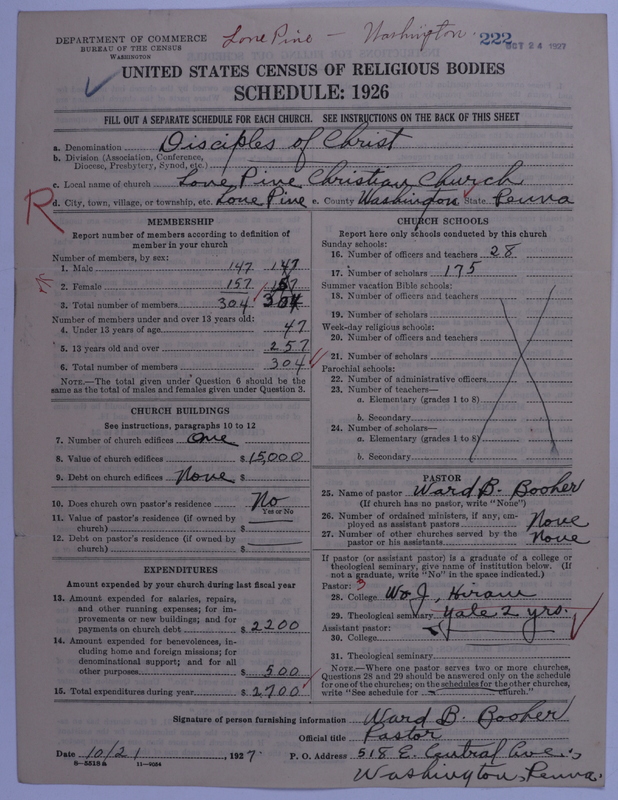 DEPARTMENT OF COMMERCE
BUREAU OF THE CENSUS
WASHINGTON
Lone Pine - Washington.
222
OCT 24 1927
UNITED STATES CENSUS OF RELIGIOUS BODIES
SCHEDULE: 1926
FILL OUT A SEPARATE SCHEDULE FOR EACH CHURCH. SEE INSTRUCTIONS ON THE BACK OF THIS SHEET
a. Denomination Disciples of Christ
b. Division (Association, Conference,
Diocese, Presbytery, Synod, etc.)
c. Local name of church Lone Pine Christian Church
R d. City, town, village, or township, etc. Lone Pine e. County Washington State Penna
MEMBERSHIP
Report number of members according to definition of
member in your church
Number of members, by sex:
1. Male 147 147
2. Female 157 157
3. Total number of members 304 304
Number of members under and over 13 years old:
4. Under 13 years of age 47
5. 13 years old and over 257
6. Total number of members 304
NOTE.—The total given under Question 6 should be the
same as the total of males and females given under Question 3.
CHURCH BUILDINGS
See instructions, paragraphs 10 to 12
7. Number of church edifices One
8. Value of church edifices $ 15,000
9. Debt on church edifices None $
10. Does church own pastor's residence No
Yes or No
11. Value of pastor's residence (if owned by
church) $
12. Debt on pastor's residence (if owned by
church) $
EXPENDITURES
Amount expended by your church during last fiscal year
13. Amount expended for salaries, repairs,
and other running expenses; for im-
provements or new buildings; and for
payments on church debt $ 2200
14. Amount expended for benevolences, in-
cluding home and foreign missions; for
denominational support; and for all
other purposes $ 500
15. Total expenditures during year $ 2700
CHURCH SCHOOLS
Report here only schools conducted by this church
Sunday schools:
16. Number of officers and teachers 28
17. Number of scholars 175
Summer vacation Bible schools:
18. Number of officers and teachers
19. Number of scholars
Week-day religious schools:
20. Number of officers and teachers
21. Number of scholars
Parochial schools:
22. Number of administrative officers
23. Number of teachers—
a. Elementary (grades 1 to 8)
b. Secondary
24. Number of scholars—
a. Elementary (grades 1 to 8)
b. Secondary
PASTOR
25. Name of pastor Ward B. Booher
(If church has no pastor, write "None")
26. Number of ordained ministers, if any, em-
ployed as assistant pastors None
27. Number of other churches served by the
pastor or his assistants None
If pastor (or assistant pastor) is a graduate of a college or
theological seminary, give name of institution below. (If
not a graduate, write "No" in the space indicated.)
Pastor: 3
28. College W & J, Hiram
29. Theological seminary Yale 2 yrs.
Assistant pastor:
30. College
31. Theological seminary
NOTE.—Where one pastor serves two or more churches,
Questions 28 and 29 should be answered only on the schedule
for one of the churches; on the schedules for the other churches,
write "See schedule for church."
Signature of person furnishing information Ward B. Booher
Official title Pastor
Date 10/21, 1927. P. O. Address 518 E. Central Ave.,
8—5518a 11—9034
Washington, Penna.